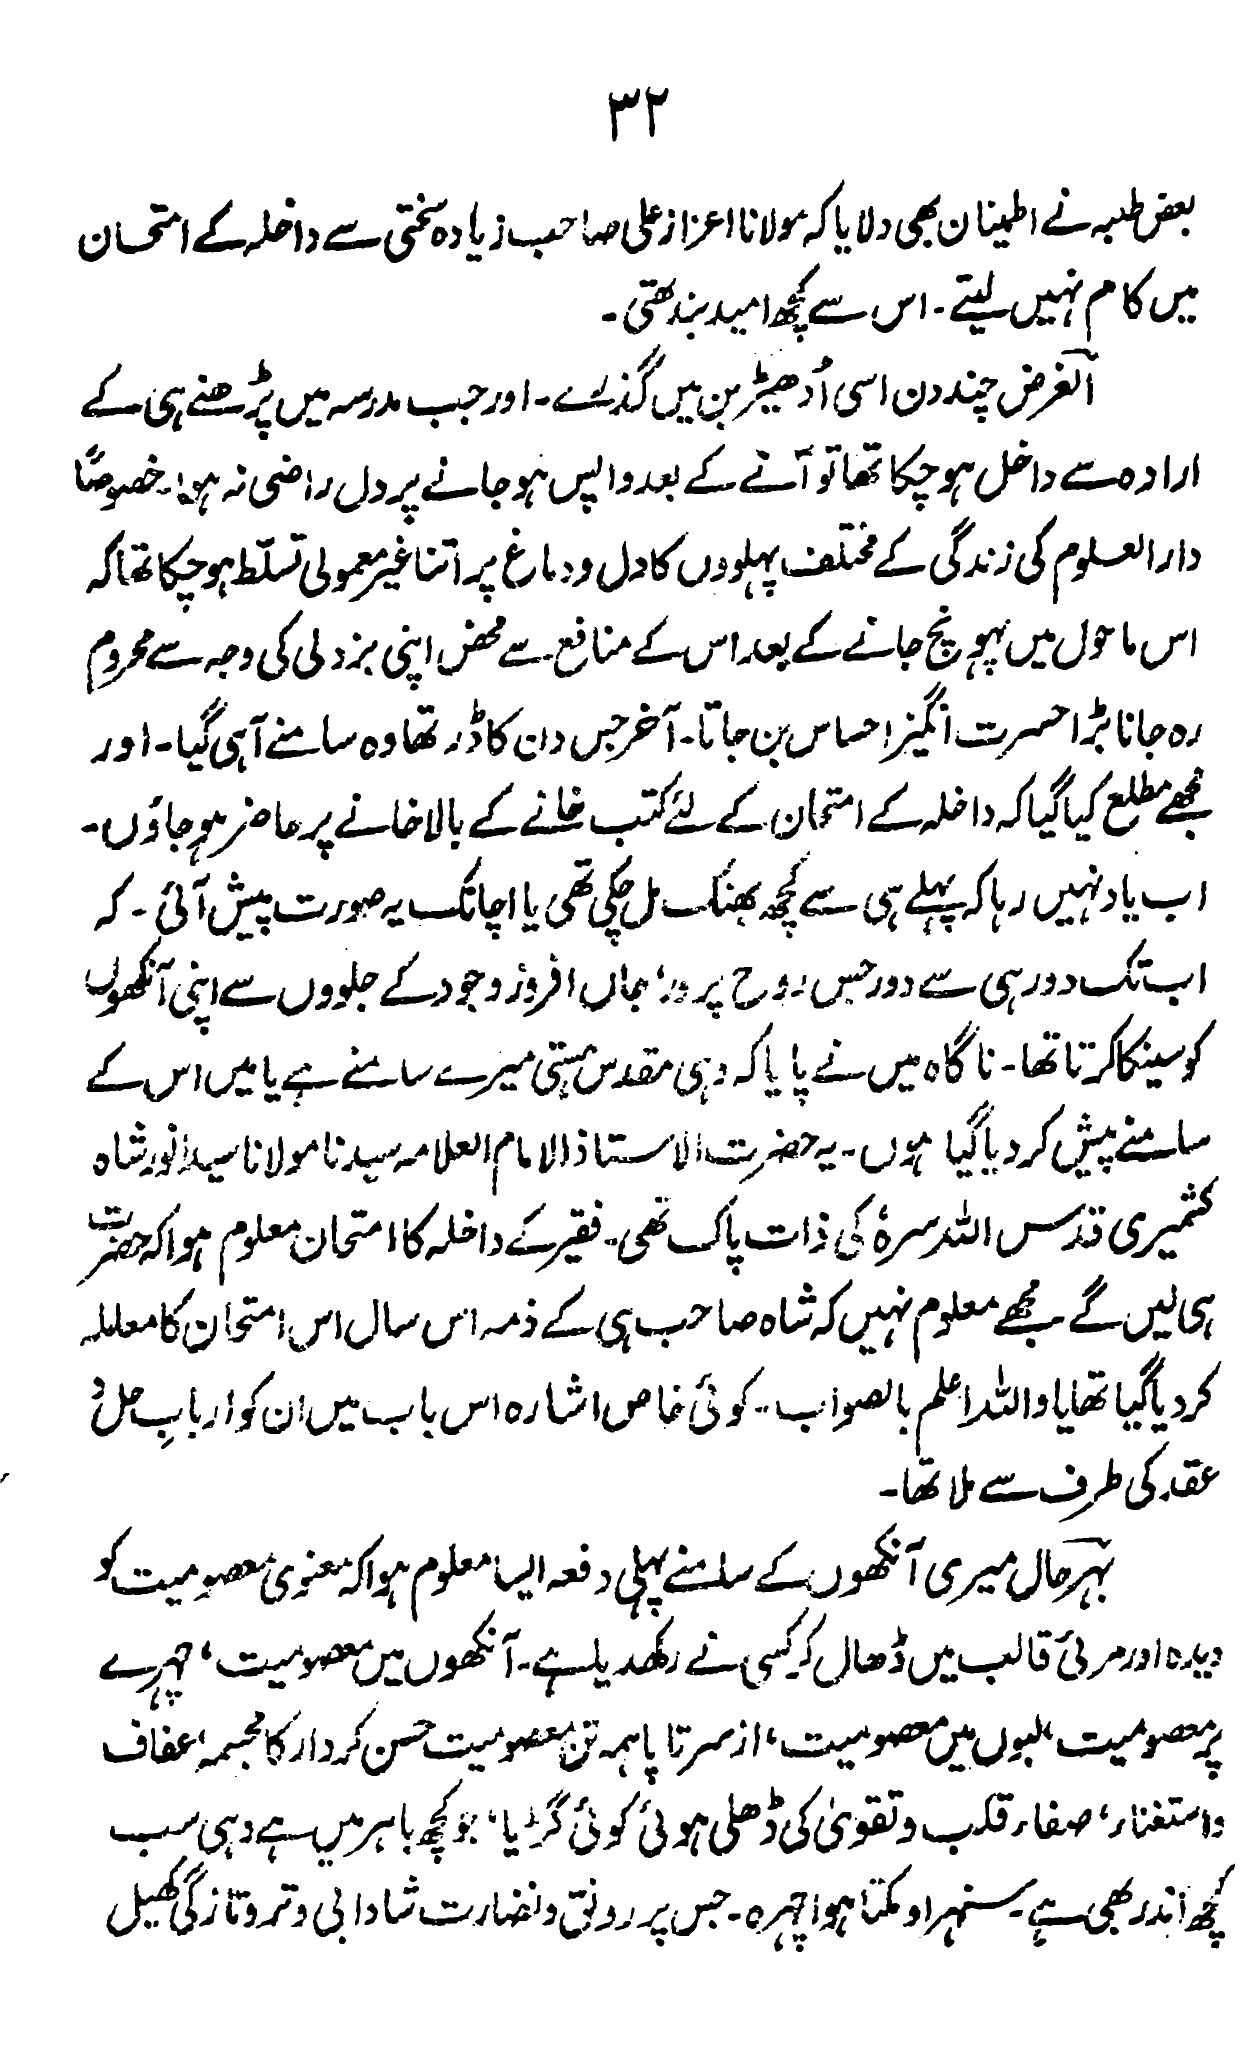 ۳۲
بعض طلبہ نے اطمینان بھی دلایا کہ مولانا اعزاز علی صاحب زیادہ سختی سے داخلہ کے امتحان
میں کام نہیں لیتے۔ اس سے کچھ امید بندھتی۔
الغرض چند دن اسی اُدھیڑ بن میں گذرے۔ اور جب مدرسہ میں پڑھنے ہی کے
ارادہ سے داخل ہو چکا تھا تو آنے کے بعد واپس ہو جانے پر دل راضی نہ ہوا۔ خصوصًا
دارالعلوم کی زندگی کے مختلف پہلووں کا دل و دماغ پر اتنا غیر معمولی تسلّط ہو چکا تھا کہ
اس ماحول میں پہونچ جانے کے بعد اس کے منافع سے محض اپنی بزدلی کی وجہ سے محروم
رہ جانا بڑا حسرت انگیز احساس بن جاتا۔ آخر جس دن کا ڈر تھا وہ سامنے آہی گیا۔ اور
مجھے مطلع کیا گیا کہ داخلہ کے امتحان کے لئے کتب خانے کے بالاخانے پر حاضر ہو جاؤں۔
اب یاد نہیں رہا کہ پہلے ہی سے کچھ بھنک مل چکی تھی یا اچانک یہ صورت پیش آئی۔ کہ
اب تک دور ہی سے دور جس روح پرور، جاں افروز وجود کے جلووں سے اپنی آنکھوں
کو سینکا کرتا تھا۔ ناگاہ میں نے پایا کہ وہی مقدس ہستی میرے سامنے ہے یا میں اس کے
سامنے پیش کر دیا گیا ہوں۔ یہ حضرت الاستاذ الامام العلامہ سیدنا مولانا سید انور شاہ
کشمیری قدّس اللہ سرہٗ کی ذات پاک تھی۔ فقیر کے داخلہ کا امتحان معلوم ہوا کہ حضرت
ہی لیں گے مجھے معلوم نہیں کہ شاہ صاحب ہی کے ذمہ اس سال اس امتحان کا معاملہ
کر دیا گیا تھا یا واللہ اعلم بالصواب۔ کوئی خاص اشارہ اس باب میں ان کو اربابِ حل و
عقد کی طرف سے ملا تھا۔
بہرحال میری آنکھوں کے سامنے پہلی دفعہ ایسا معلوم ہوا کہ معنوی معصومیت کو
دیدہ اور مرئی قالب میں ڈھال کر کسی نے رکھدیا ہے۔ آنکھوں میں معصومیت، چہرے
پر معصومیت، لبوں میں معصومیت، از سر تا پا ہمہ تن معصومیت حسن کردار کا مجسمہ، عفاف
واستغناء، صفاء قلب و تقویٰ کی ڈھلی ہوئی کوئی گڑیا، جو کچھ باہر میں ہے وہی سب
کچھ اندر بھی ہے۔ سنہرا دمکتا ہوا چہرہ۔ جس پر رونق و نضارت شادابی و تروتازگی کھیل